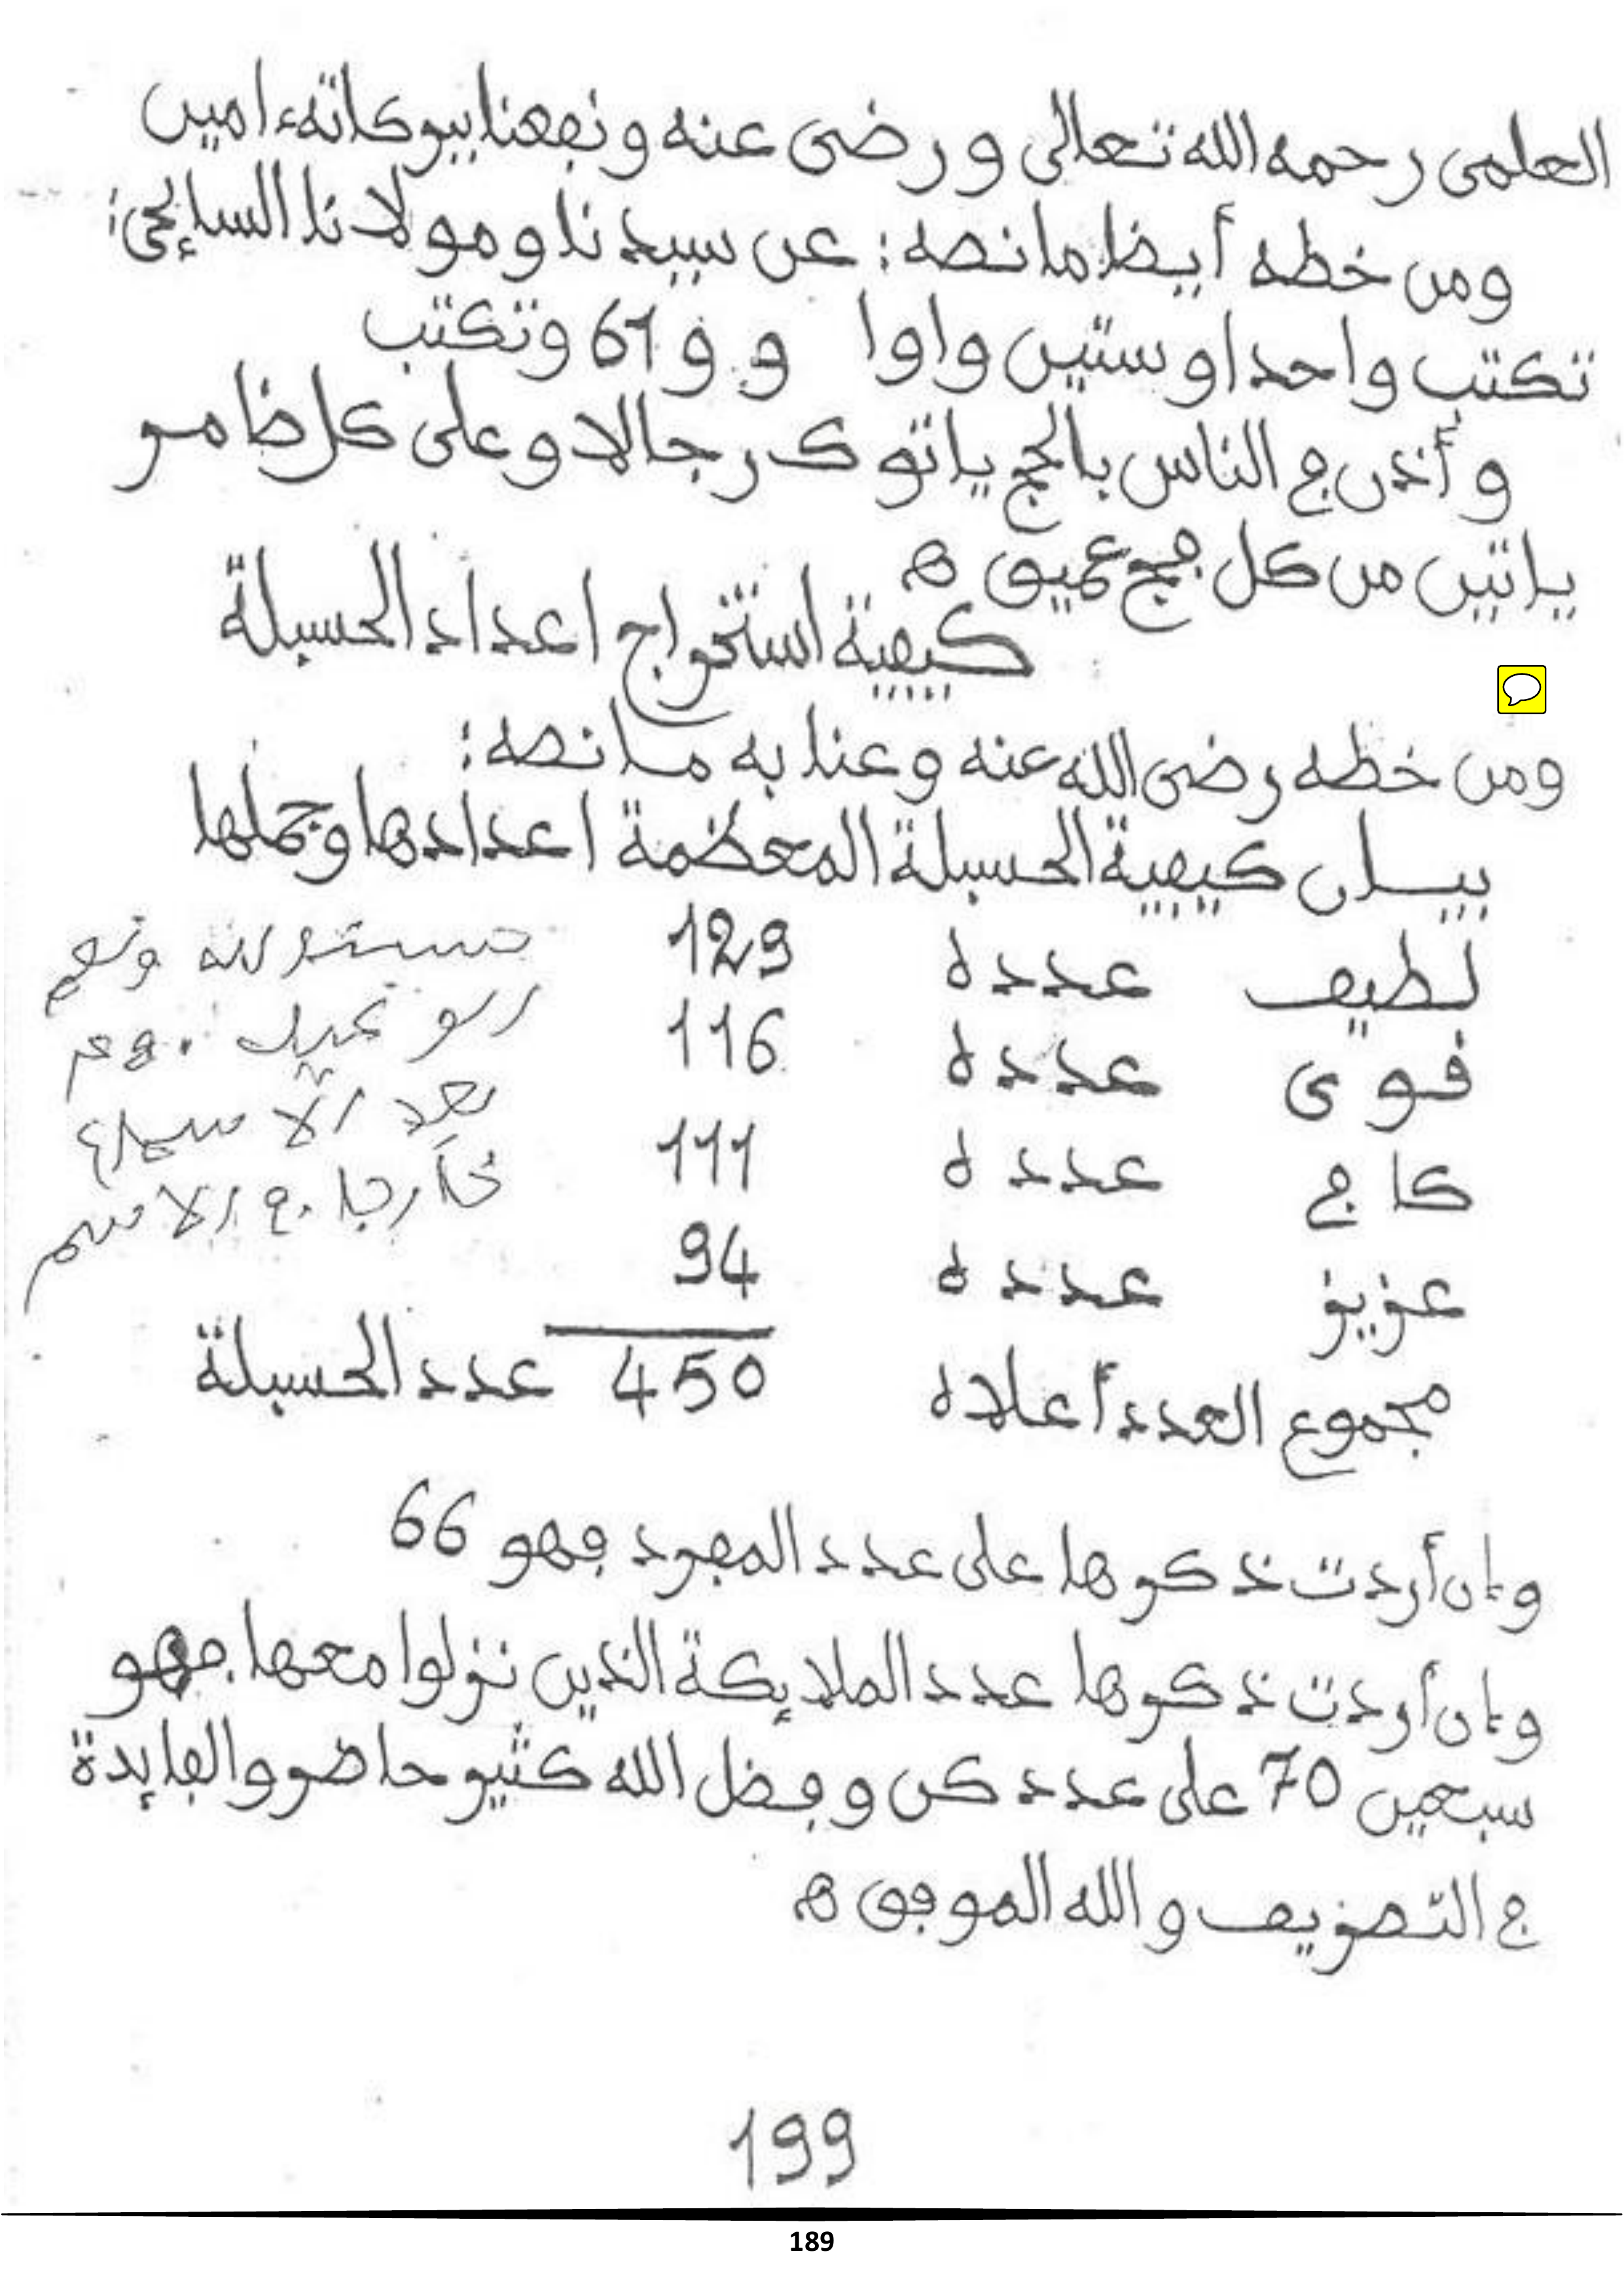 العلمى رحمه الله تعالى ورضى عنه ونفعنا ببركاته ءامين
ومن خطه أيضا ما نصه: عن سيدنا ومولانا السايحى:
تكتب واحدا وستين واوا و و و 61 وتكتب
وأذن في الناس بالحج ياتوك رجالا وعلى كل ضامر
ياتين من كل فج عميق ه
كيفية استخراج اعداد الحسبلة
ومن خطه رضى الله عنه وعنا به ما نصه:
بيان كيفية الحسبلة المعظمة اعدادها وجملها
لطيف عدده 129
قوى عدده 116
كافي عدده 111
عزيز عدده 94
مجموع العدد أعلاه 450 عدد الحسبلة
حسبنا الله ونعم
الوكيل
بعد الأسماء
خارجا الاسم
وإن أردت ذكرها على عدد المفرد فهو 66
وإن أردت ذكرها عدد الملايكة الذين نزلوا معها فهو
سبعين 70 على عدد كن وفضل الله كثير حاضر والفايدة
في التصريف والله الموفق ه
199
189